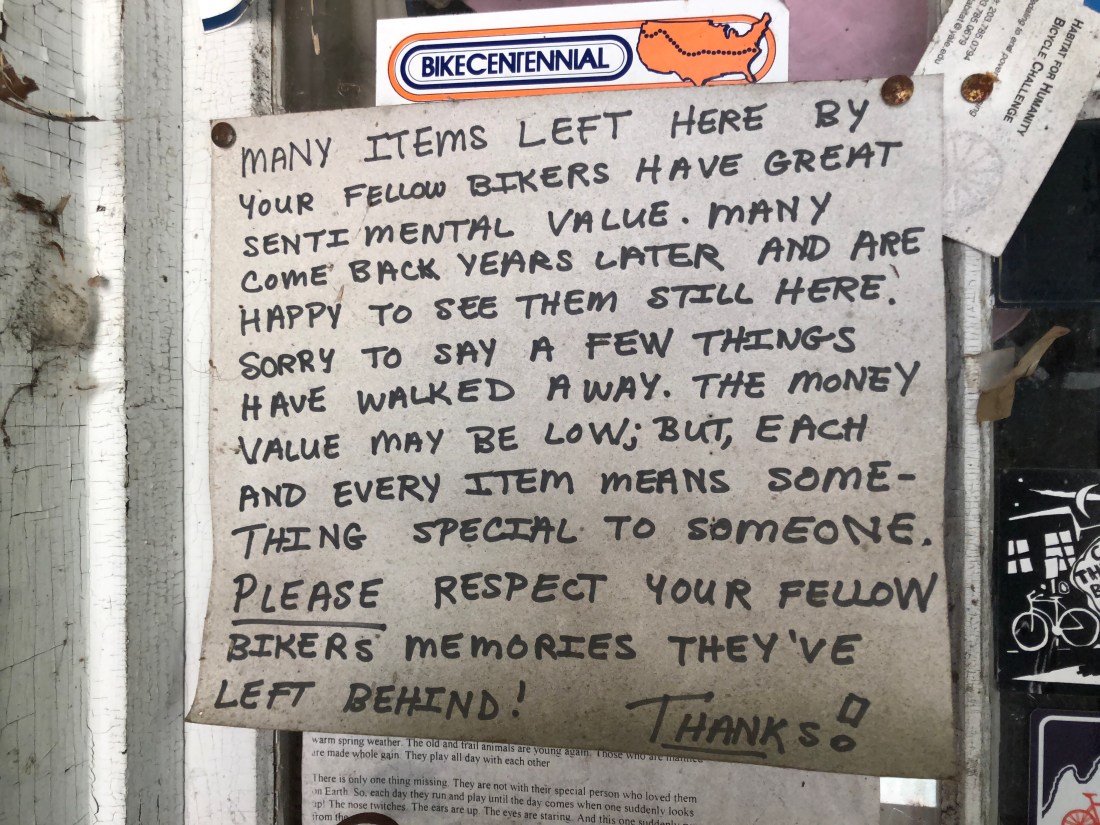 BIKECENTENNIAL
HABITAT FOR HUMANITY
BICYCLE CHALLENGE
203.785.0794
785.0679
@yale.edu
MANY ITEMS LEFT HERE BY
YOUR FELLOW BIKERS HAVE GREAT
SENTIMENTAL VALUE. MANY
COME BACK YEARS LATER AND ARE
HAPPY TO SEE THEM STILL HERE.
SORRY TO SAY A FEW THINGS
HAVE WALKED AWAY. THE MONEY
VALUE MAY BE LOW; BUT, EACH
AND EVERY ITEM MEANS SOME-
THING SPECIAL TO SOMEONE.
PLEASE RESPECT YOUR FELLOW
BIKERS' MEMORIES THEY'VE
LEFT BEHIND!
THANKS!
warm spring weather. The old and trail animals are young again. Those who are
are made whole gain. They play all day with each other
There is only one thing missing. They are not with their special person who loved them
on Earth. So, each day they run and play until the day comes when one suddenly looks
up! The nose twitches. The ears are up. The eyes are staring. And this one suddenly
from the